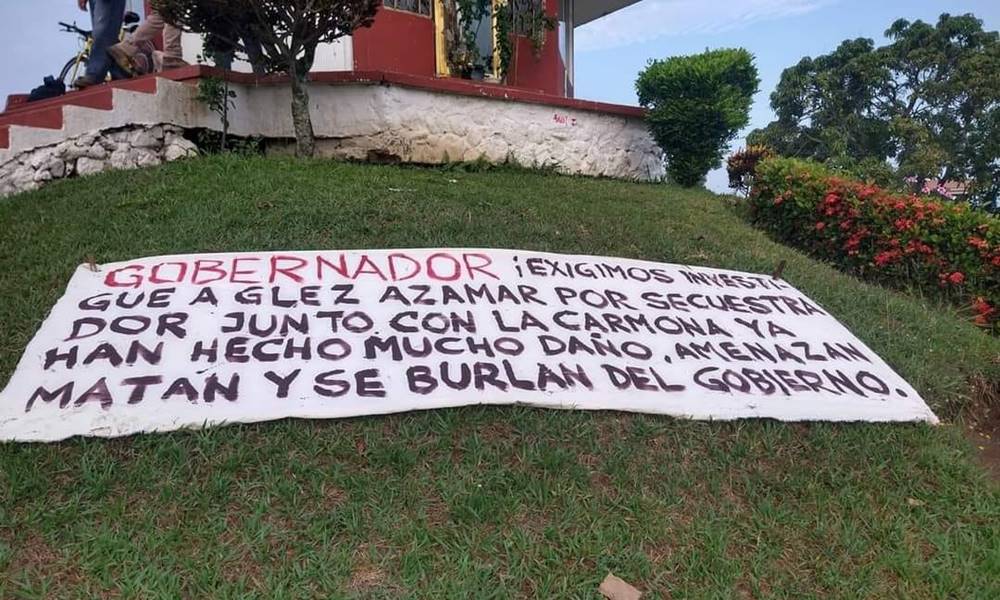 GOBERNADOR ¡EXIGIMOS INVESTI-
GUE A GLEZ AZAMAR POR SECUESTRA
DOR JUNTO CON LA CARMONA YA
HAN HECHO MUCHO DAÑO, AMENAZAN
MATAN Y SE BURLAN DEL GOBIERNO.